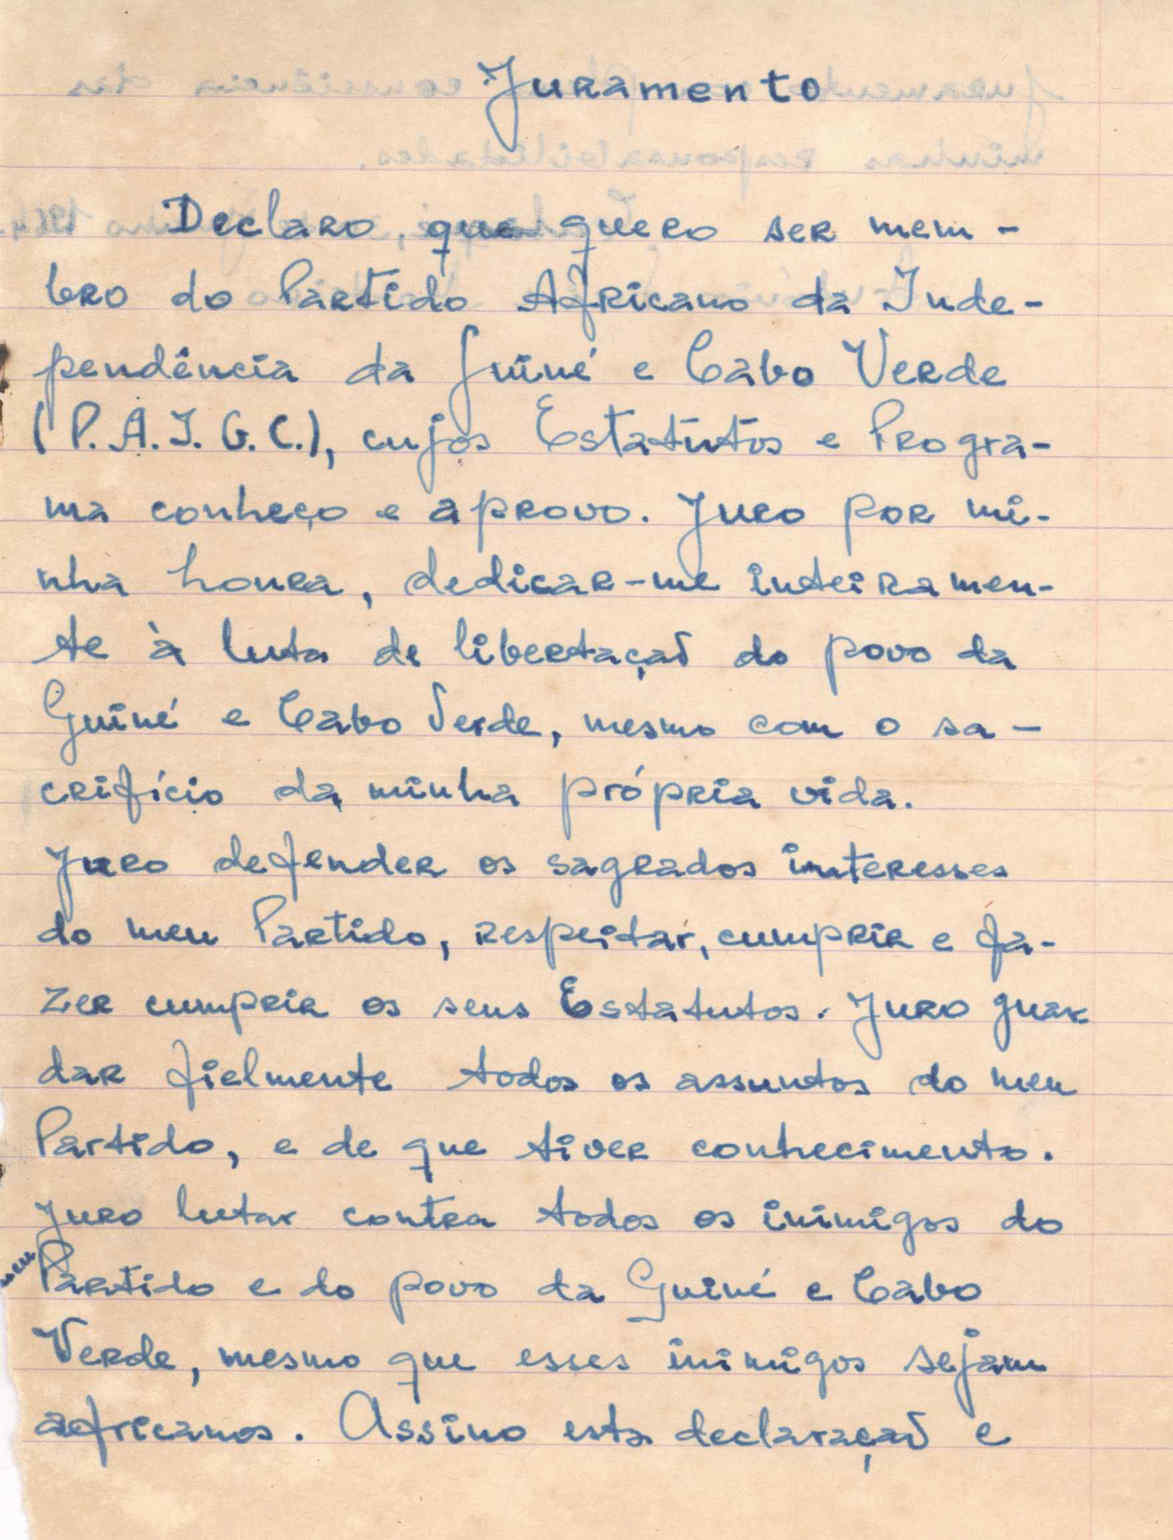 Juramento
Declaro, que quero ser mem-
bro do Partido Africano da Inde-
pendência da Guiné e Cabo Verde
(P.A.I.G.C.), cujos Estatutos e Progra-
ma conheço e aprovo. Juro por mi-
nha honra, dedicar-me inteiramen-
te à luta de libertação do povo da
Guiné e Cabo Verde, mesmo com o sa-
crifício da minha própria vida.
Juro defender os sagrados interesses
do meu Partido, respeitar, cumprir e fa-
zer cumprir os seus Estatutos. Juro guar
dar fielmente todos os assuntos do meu
Partido, e de que tiver conhecimento.
Juro lutar contra todos os inimigos do
meu Partido e do povo da Guiné e Cabo
Verde, mesmo que esses inimigos sejam
africanos. Assino esta declaração e